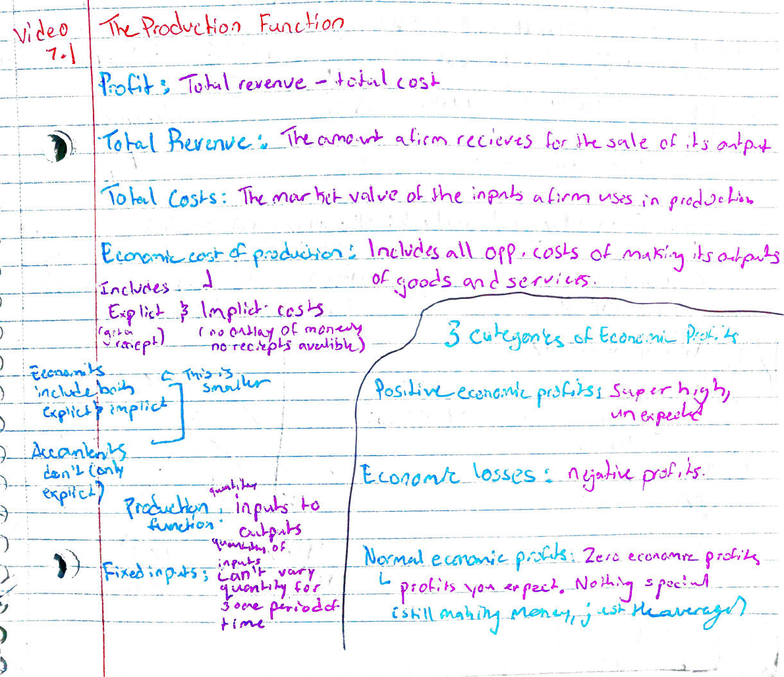 Video 7.1
The Production Function
Profit: Total revenue - total cost
Total Revenue: The amount a firm recieves for the sale of its output
Total Costs: The market value of the inputs a firm uses in production
Economic cost of production: Includes all opp. costs of making its outputs
of goods and services.
Includes
Explict & Implict costs
(get a reciept) (no outlay of money
no reciepts availible)
Economits
include both
explict & implict
← This is
smaller
Accantents
don't (only
explict)
Production function: quantity inputs to
outputs
Fixed inputs: quantity of
inputs
can't vary
quantity for
some period of
time
3 categories of Economic Profits
Positive economic profits: Super high,
unexpected
Economic losses: negative profits.
Normal economic profits: Zero economic profits,
profits you expect. Nothing special
(still making money, just the average)